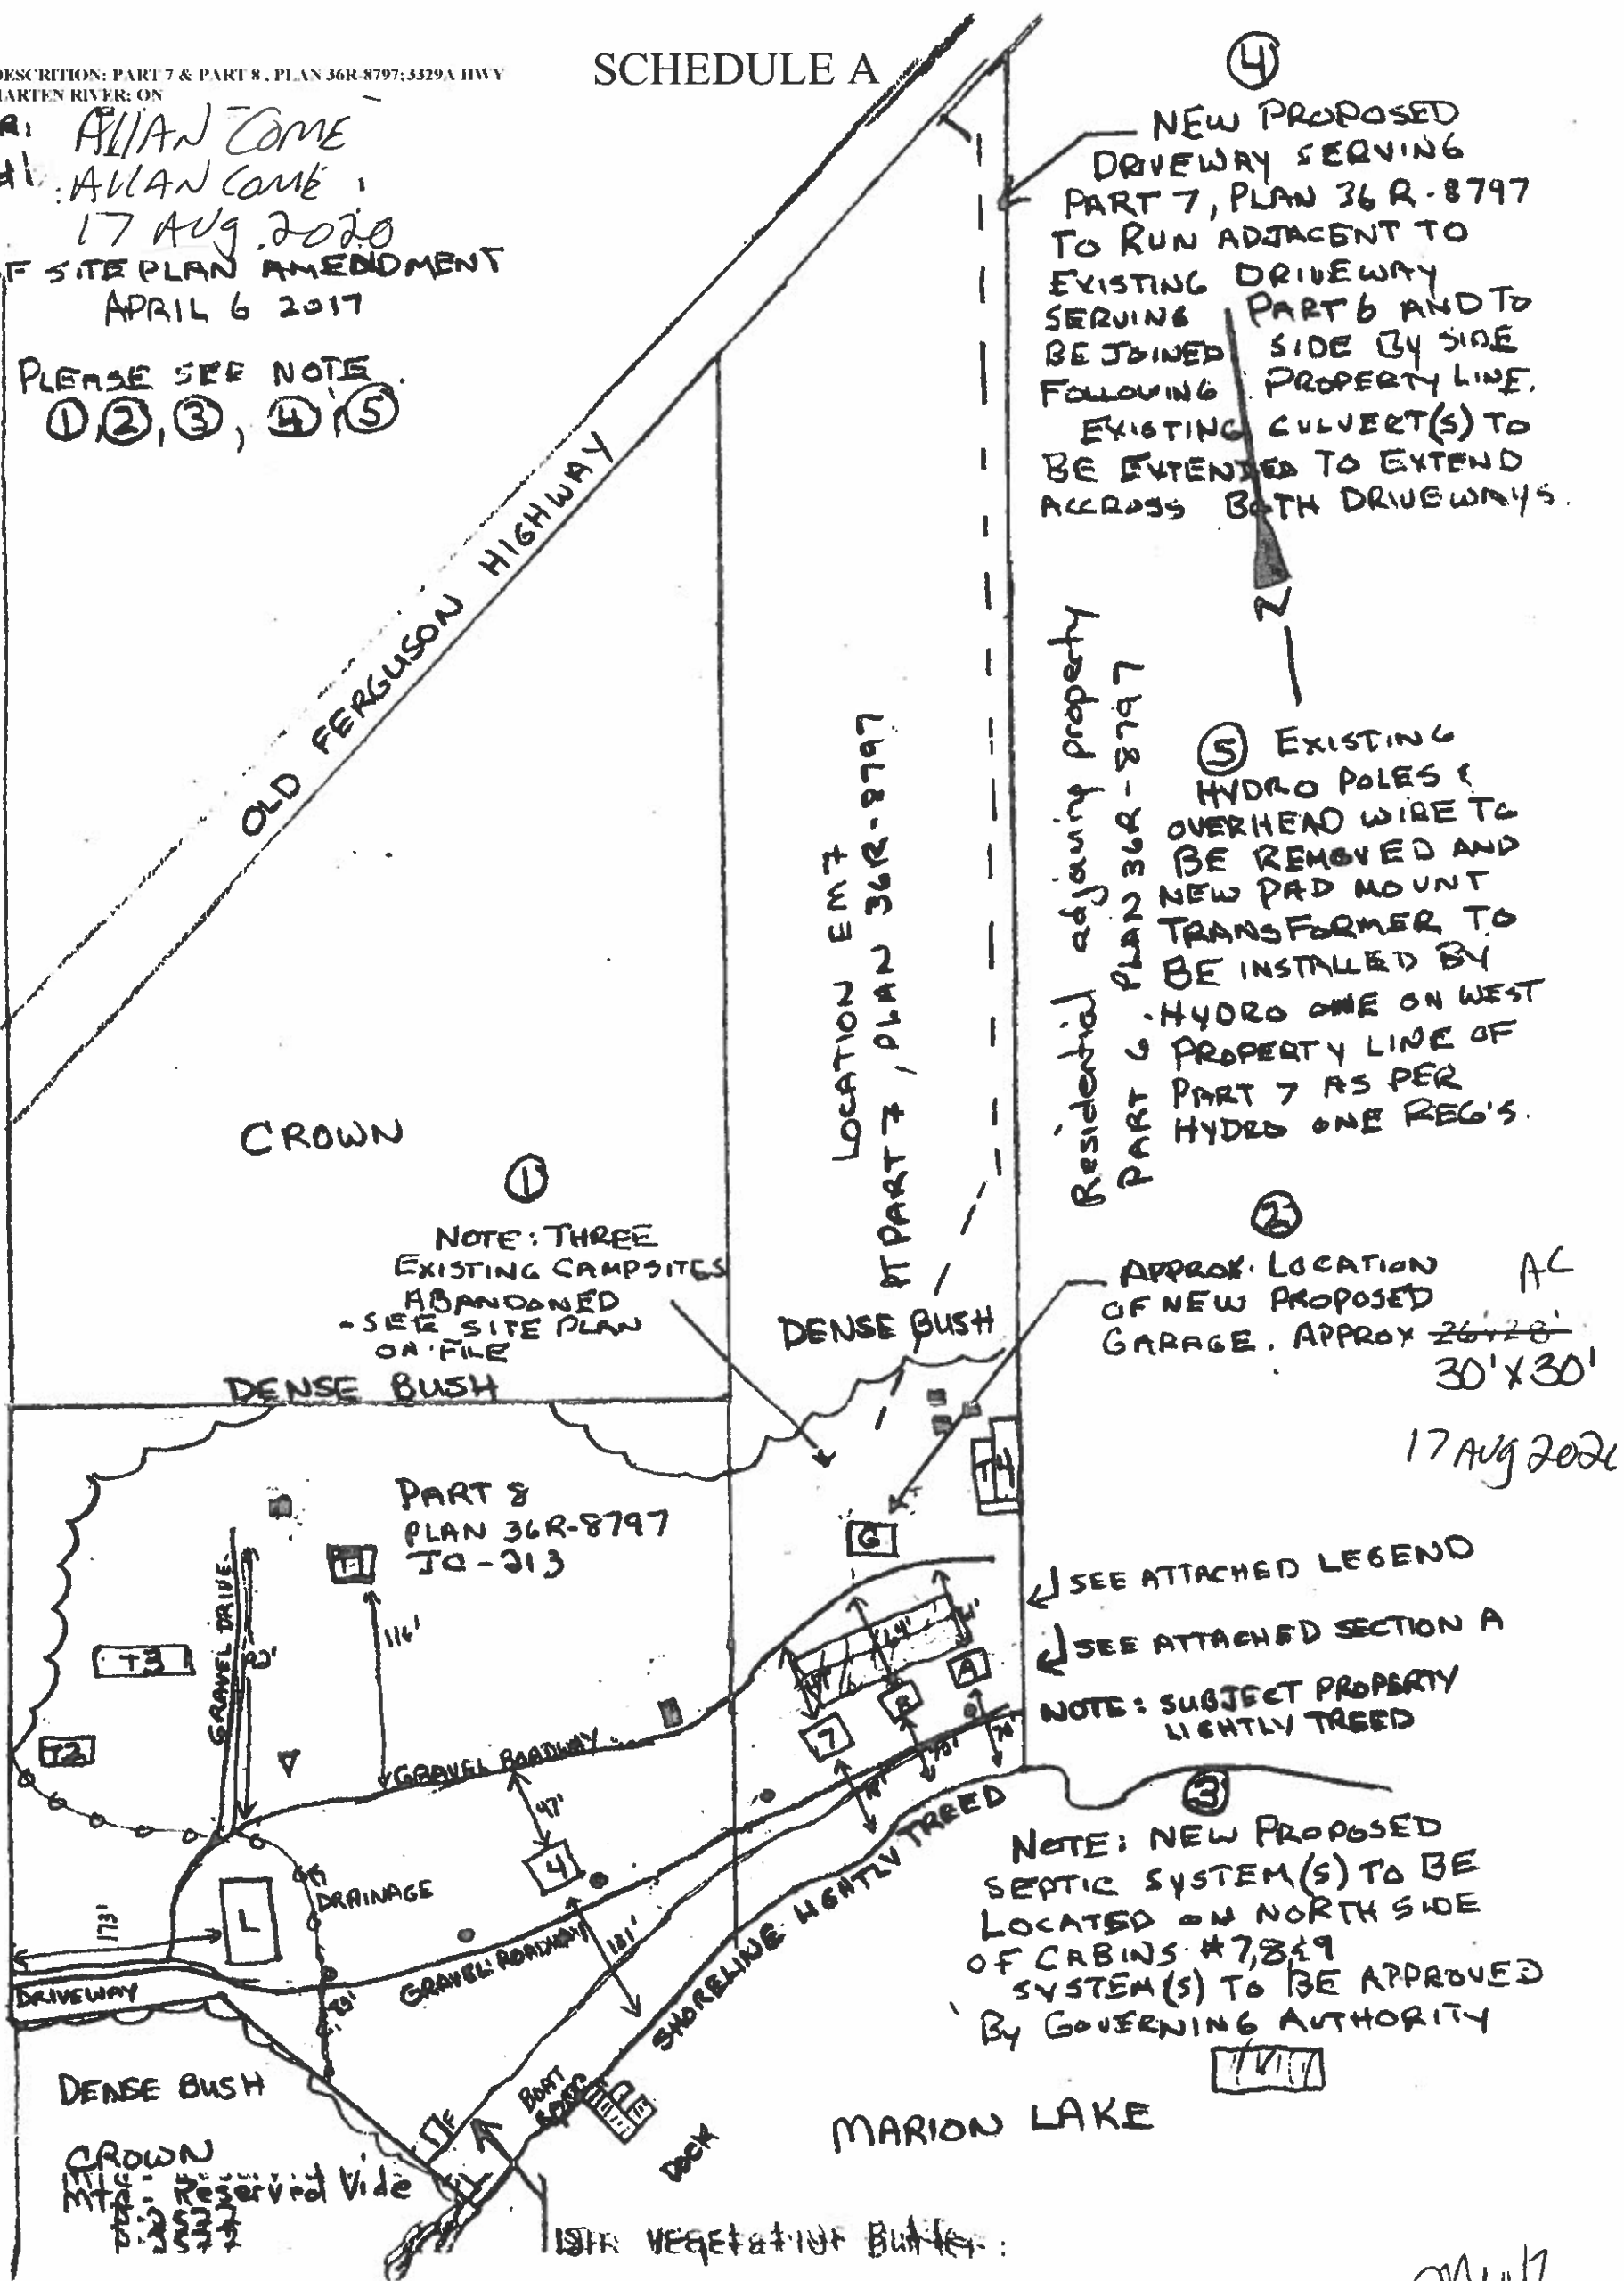 SCHEDULE A
DESCRITION: PART 7 & PART 8, PLAN 36R-8797; 3329A HWY
MARTEN RIVER; ON
ALLAN COME
ALLAN COME
17 AUG. 2020
F SITE PLAN AMENDMENT
APRIL 6 2017
PLEASE SEE NOTE
①,②,③,④,⑤
④
NEW PROPOSED
DRIVEWAY SERVING
PART 7, PLAN 36R-8797
TO RUN ADJACENT TO
EXISTING DRIVEWAY
SERVING PART 6 AND TO
BE JOINED SIDE BY SIDE
FOLLOWING PROPERTY LINE.
EXISTING CULVERT(S) TO
BE EXTENDED TO EXTEND
ACCROSS BOTH DRIVEWAYS.
N
OLD FERGUSON HIGHWAY
LOCATION EM7
PART 7, PLAN 36R-8797
Residential adjoining property
PART 6 PLAN 36R-8797
⑤ EXISTING
HYDRO POLES &
OVERHEAD WIRE TO
BE REMOVED AND
NEW PAD MOUNT
TRANSFORMER TO
BE INSTALLED BY
HYDRO ONE ON WEST
PROPERTY LINE OF
PART 7 AS PER
HYDRO ONE REG'S.
CROWN
①
NOTE: THREE
EXISTING CAMPSITES
ABANDONED
- SEE SITE PLAN
ON FILE
DENSE BUSH
DENSE BUSH
②
APPROX. LOCATION
OF NEW PROPOSED
GARAGE. APPROX 26'x28'
AC
30'X30'
17 AUG 202
PART 8
PLAN 36R-8797
JC-213
T4
G
GRAVEL DRIVE
116'
T3
T2
64'
A
8
7
SEE ATTACHED LEGEND
SEE ATTACHED SECTION A
NOTE: SUBJECT PROPERTY
LIGHTLY TREED
GRAVEL ROADWAY
47'
4
L
DRAINAGE
173'
DRIVEWAY
GRAVEL ROADWAY
131'
SHORELINE LIGHTLY TREED
③
NOTE: NEW PROPOSED
SEPTIC SYSTEM(S) TO BE
LOCATED ON NORTH SIDE
OF CABINS #7,8&9
SYSTEM(S) TO BE APPROVED
By GOVERNING AUTHORITY
DENSE BUSH
CROWN
Mta - Reserved Vide
BOAT
DOCK
MARION LAKE
15m Vegetative Buffer